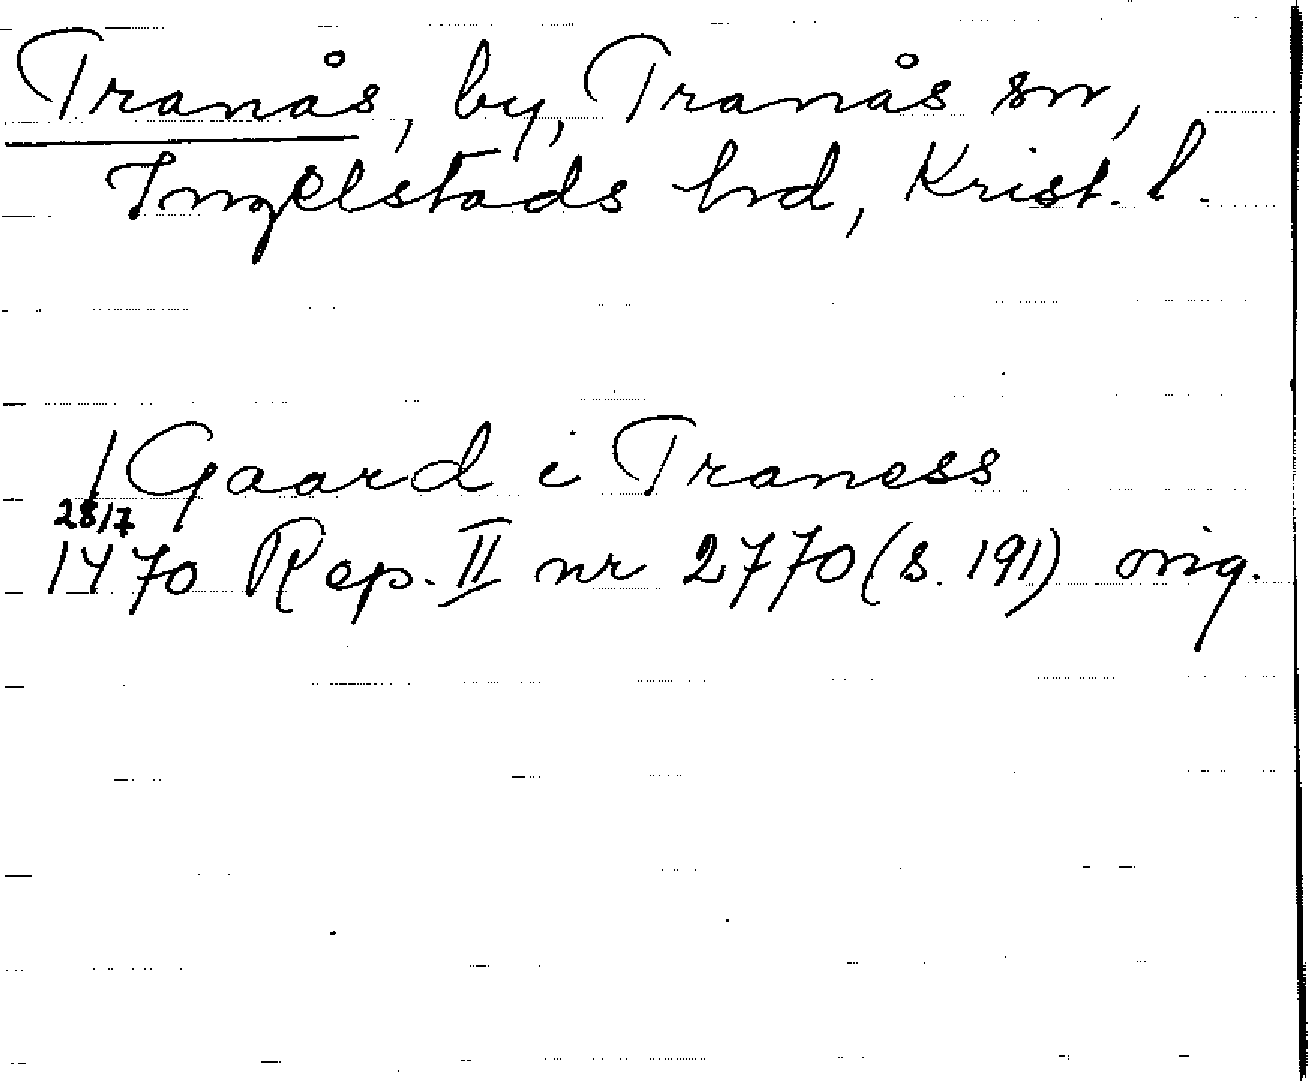 Tranås, by, Tranås sn,
Ingelstads hd, Krist. l.
1 Gaard i Traness
28/7
1470 Rep. II nr 2770 (s. 191) orig.